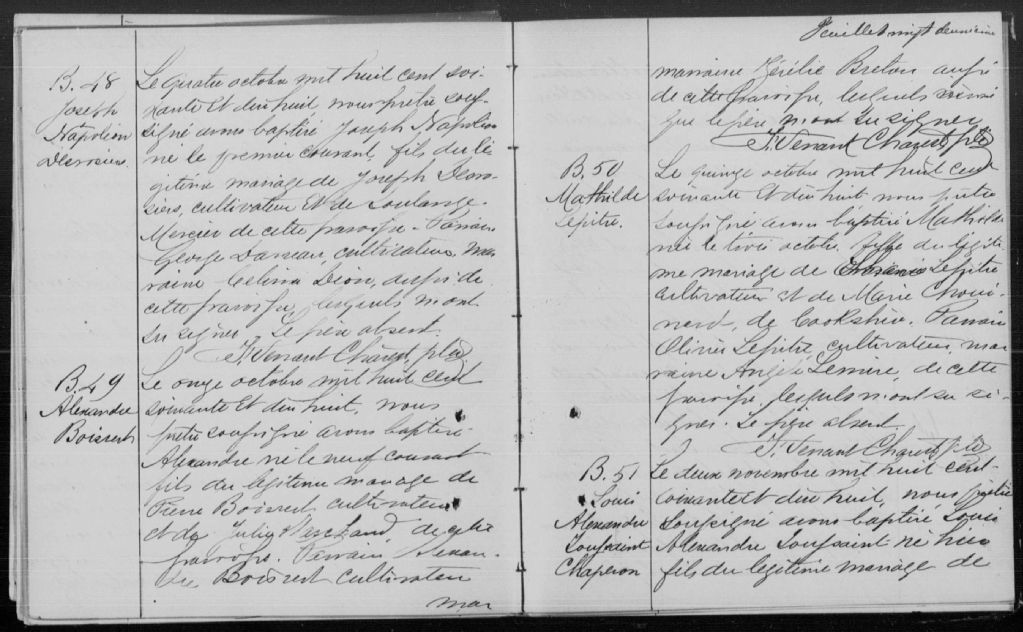 B. 48
Joseph
Napoléon
Le quatre octobre mil huit cent soi-
xante et dix huit nous prêtre sous-
signé avons baptisé Joseph Napoléon
né le premier courant, fils du lé-
gitime mariage de Joseph Des ro-
siers, cultivateur et de Soulange
Mercier de cette paroisse. Parrain
George Darveau, cultivateur, mar-
raine Celina Dion, aussi de
cette paroisse, lesquels n'ont
su signer. Le père absent.
J. Tenant Charest, ptre
B. 49
Alexandre
Boisvert
Le onze octobre mil huit cent
soixante et dix huit, nous
prêtre soussigné avons baptisé
Alexandre né le neuf courant
fils du légitime mariage de
Pierre Boisvert cultivateur
et de Julie Marchand, de cette
paroisse. Parrain Alexan-
dre Boisvert cultivateur
mar
Feuillet vingt deuxième
marraine Zélie Breton aussi
de cette paroisse, lesquels ainsi
que le père n'ont su signer
J. Tenant Charest, ptre
B. 50
Mathilde
Lepitre.
Le quinze octobre mil huit cent
soixante et dix huit, nous prêtre
soussigné avons baptisé Mathilde
née le trois octobre, fille du légiti-
me mariage de Lepitre
cultivateur et de Marie Choui-
nard, de Cookshire. Parrain
Olivier Lepitre, cultivateur, mar-
raine Angèle Lemire, de cette
paroisse, lesquels n'ont su si-
gner. Le père absent.
J. Tenant Charest ptre
B. 51
Louis
Alexandre
Toussaint
Chaperon
Le deux novembre mil huit cent
soixante et dix huit, nous prêtre
soussigné avons baptisé Louis
Alexandre Toussaint né hier
fils du légitime mariage de